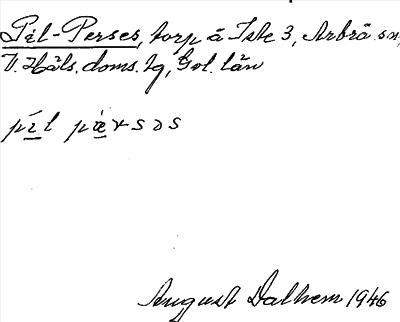 Pil-Perses, torp å Iste 3, Arbrå sn,
V. Häls. doms. tg, Gvl. län
pìl pæ̀rsəs
August Dalhem 1946